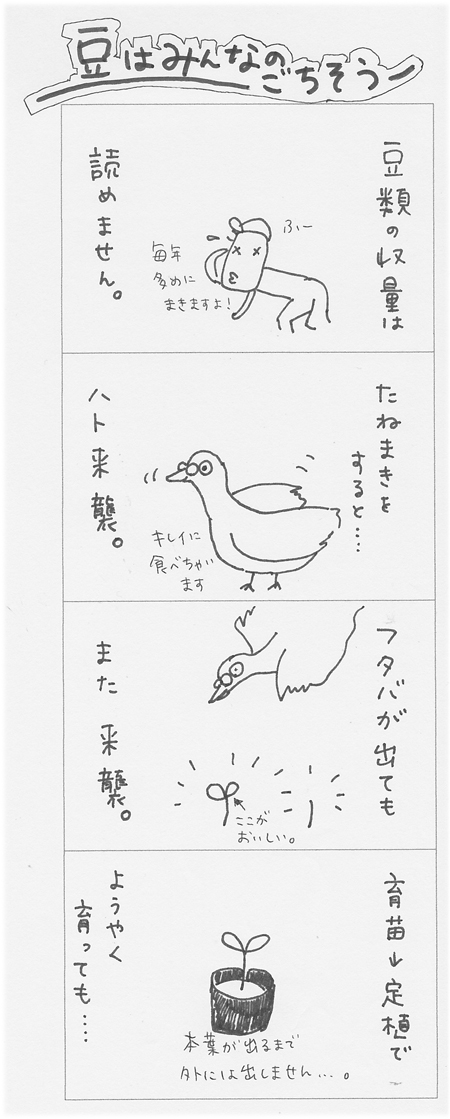 豆はみんなのごちそう
豆類の収量は
読めません。
ふー
毎年
多めに
まきますよ!
たねまきを
すると……
ハト来襲。
キレイに
食べちゃい
ます
フタバが出ても
また来襲。
ここが
おいしい。
育苗→定植で
ようやく
育っても……
本葉が出るまで
外には出しません…。